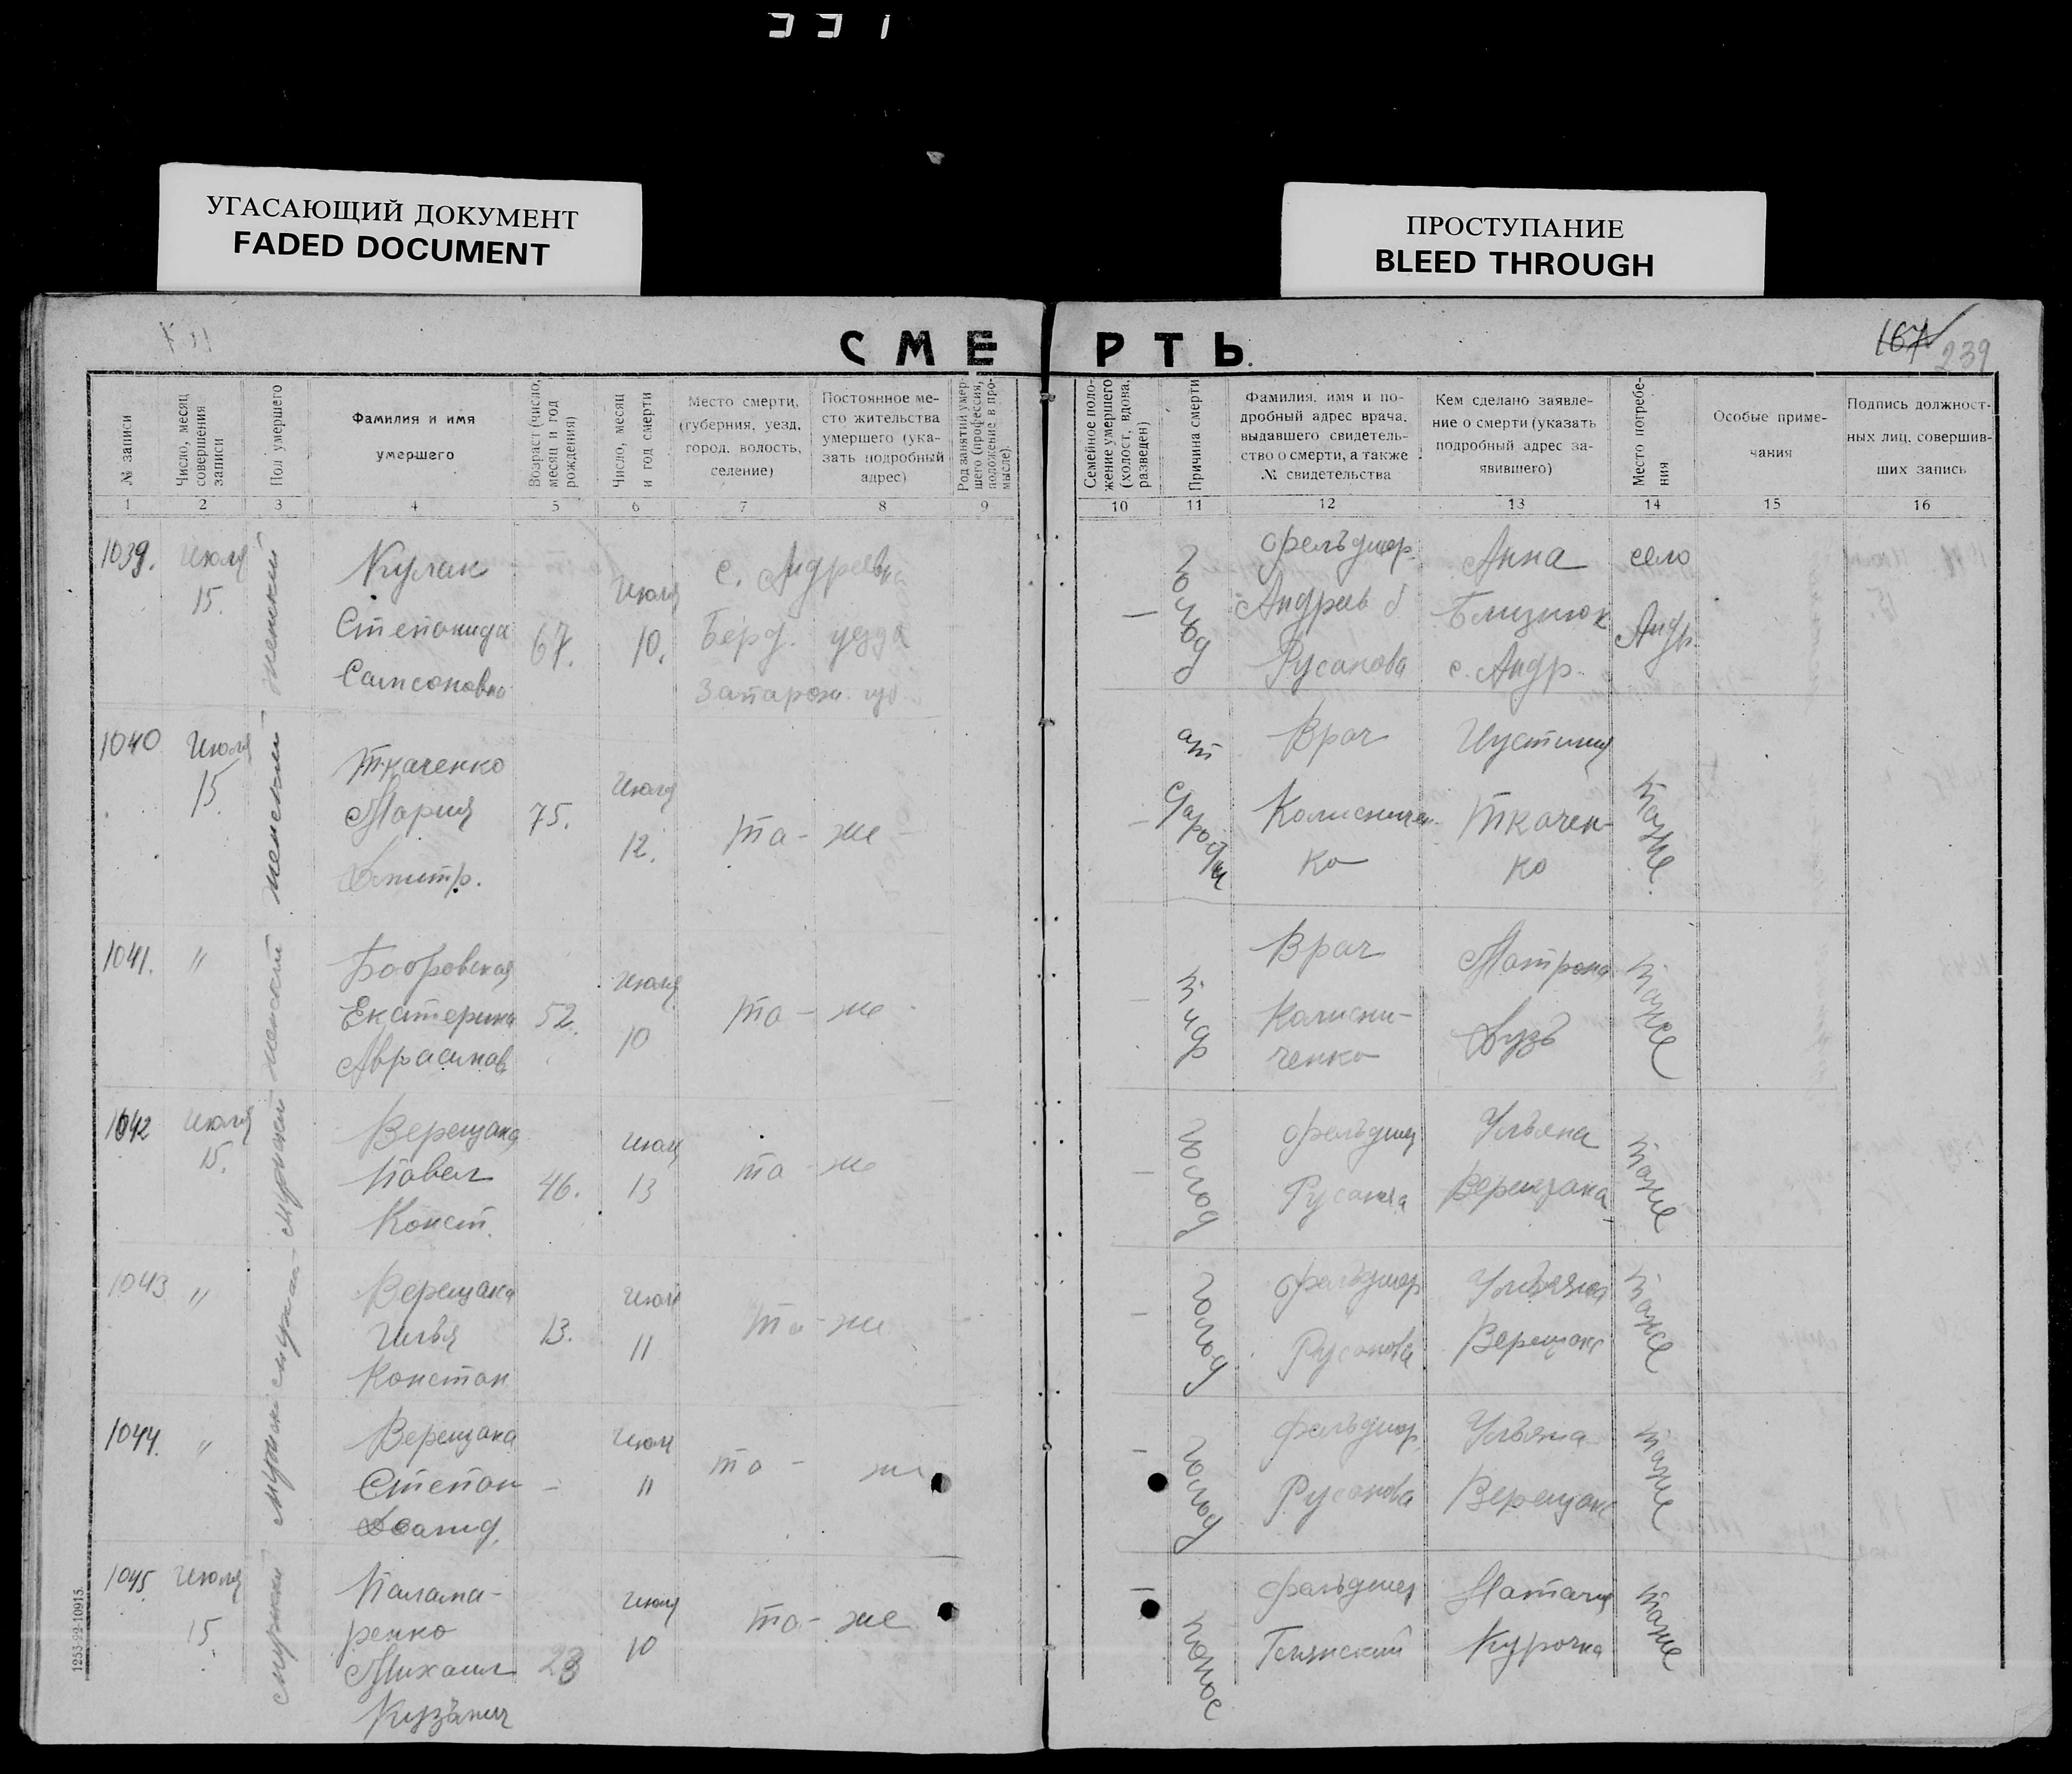 УГАСАЮЩИЙ ДОКУМЕНТ
FADED DOCUMENT
ПРОСТУПАНИЕ
BLEED THROUGH
СМЕРТЬ.
167 239
№ записи
Число, месяц совершения записи
Пол умершего
Фамилия и имя умершего
Возраст (число, месяц и год рождения)
Число, месяц и год смерти
Место смерти, (губерния, уезд, город, волость, селение)
Постоянное место жительства умершего (указать подробный адрес)
Род занятий умершего (профессия, положение в промысле).
Семейное положение умершего (холост, вдова, разведен)
Причина смерти
Фамилия, имя и подробный адрес врача, выдавшего свидетельство о смерти, а также № свидетельства
Кем сделано заявление о смерти (указать подробный адрес заявившего)
Место погребения
Особые примечания
Подпись должностных лиц, совершивших запись
1 2 3 4 5 6 7 8 9 10 11 12 13 14 15 16
1039. Июля 15. женский Кулак Степонида Самсоновна 67. Июля 10. с. Андреевка Берд. уезда Запарож. губ. — голод фельдшер Андреев Русакова Анна Близнюк с. Андр. село Андр.
1040 Июля 15. женский Ткаченко Мария Дмитр. 75. Июля 12. та-же — от старости Врач Колисничен-ко Иустиния Ткачен-ко таже.
1041. " женский Бобровская Екатерина 52. Июля 10 та-же — тиф Врач Колисни-ченко Матрона Дузь таже
1042 Июля 15. мужской Верещака Павел Конст. 46. Июля 13 та-же — голод фельдшер Русакова Ульяна Верещака таже
1043 " мужской Верещака Илья Констан 13. Июля 11 та-же — голод фельдшер Русакова Ульяна Верещака таже
1044. " мужской Верещака Степан — Июля 11 та-же — голод фельдшер Русакова Ульяна Верещака таже
1045 Июля 15. мужской Палама-ренко Михаил Кузьмич 23 Июля 10 та-же — понос фельдшер Наталия Курочка таже
1253-22-10915.